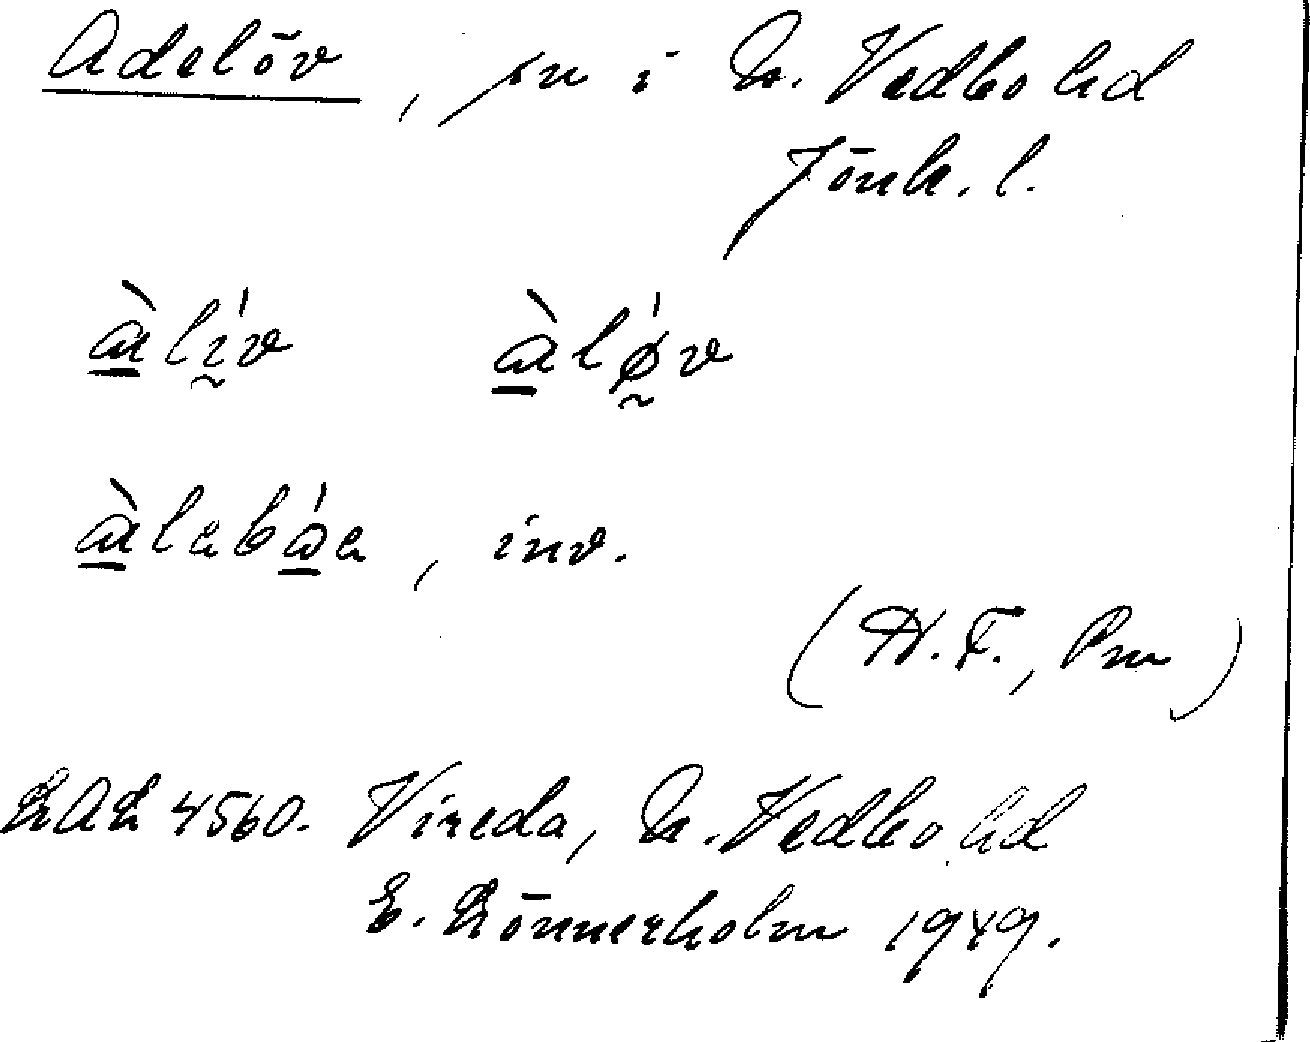 Adelöv, sn i N. Vedbo hd
Jönk. l.
àlív àlǿv
àlabóa, inv.
(H.F., Pm)
LAL 4560. Vireda, N. Vedbo hd
E. Lönnerholm 1949.